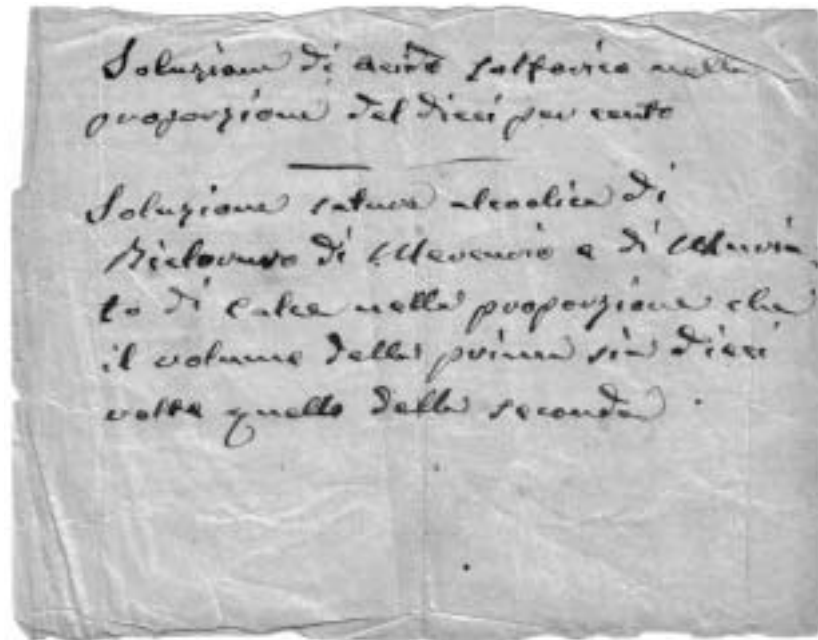 Soluzione di acido solforico nella
proporzione del dieci per cento
Soluzione satura alcoolica di
Bicloruro di Mercurio e di Muria
to di calce nella proporzione che
il volume della prima sia dieci
volte quello della seconda.